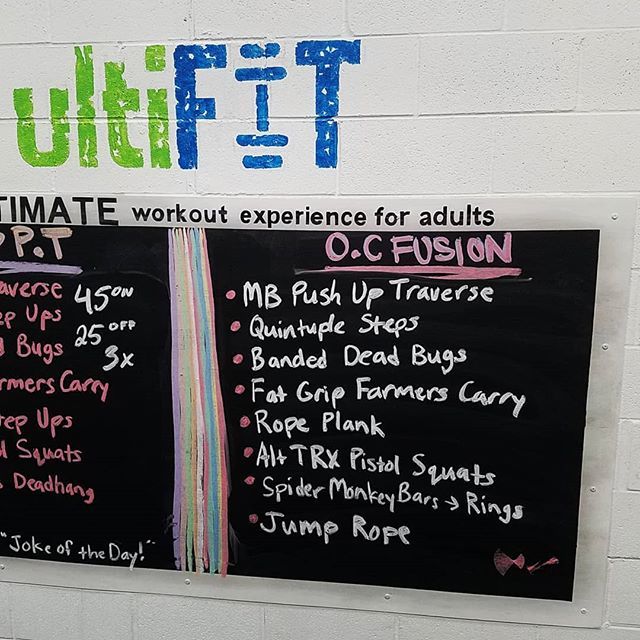 ultiFIT
TIMATE workout experience for adults
P.T
averse
45 ON
ep Ups
25 OFF
Bugs
3x
rmers Carry
tep Ups
Squats
Deadhang
"Joke of the Day!"
O.C FUSION
• MB Push Up Traverse
• Quintuple Steps
• Banded Dead Bugs
• Fat Grip Farmers Carry
• Rope Plank
• Alt TRX Pistol Squats
• Spider Monkey Bars → Rings
• Jump Rope